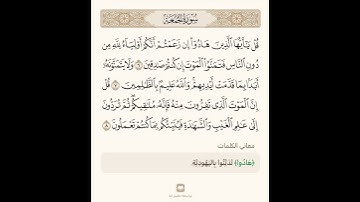 سُورَةُ الجُمُعَةِ
قُلْ يَٰٓأَيُّهَا ٱلَّذِينَ هَادُوٓا۟ إِن زَعَمْتُمْ أَنَّكُمْ أَوْلِيَآءُ لِلَّهِ مِن
دُونِ ٱلنَّاسِ فَتَمَنَّوُا۟ ٱلْمَوْتَ إِن كُنتُمْ صَٰدِقِينَ ٦ وَلَا يَتَمَنَّوْنَهُۥٓ
أَبَدًۢا بِمَا قَدَّمَتْ أَيْدِيهِمْ ۚ وَٱللَّهُ عَلِيمٌۢ بِٱلظَّٰلِمِينَ ٧ قُلْ
إِنَّ ٱلْمَوْتَ ٱلَّذِى تَفِرُّونَ مِنْهُ فَإِنَّهُۥ مُلَٰقِيكُمْ ۖ ثُمَّ تُرَدُّونَ
إِلَىٰ عَٰلِمِ ٱلْغَيْبِ وَٱلشَّهَٰدَةِ فَيُنَبِّئُكُم بِمَا كُنتُمْ تَعْمَلُونَ ٨
معاني الكلمات
﴿هَادُوٓا۟﴾ تَدَيَّنُوا بِاليَهُودِيَّةِ.